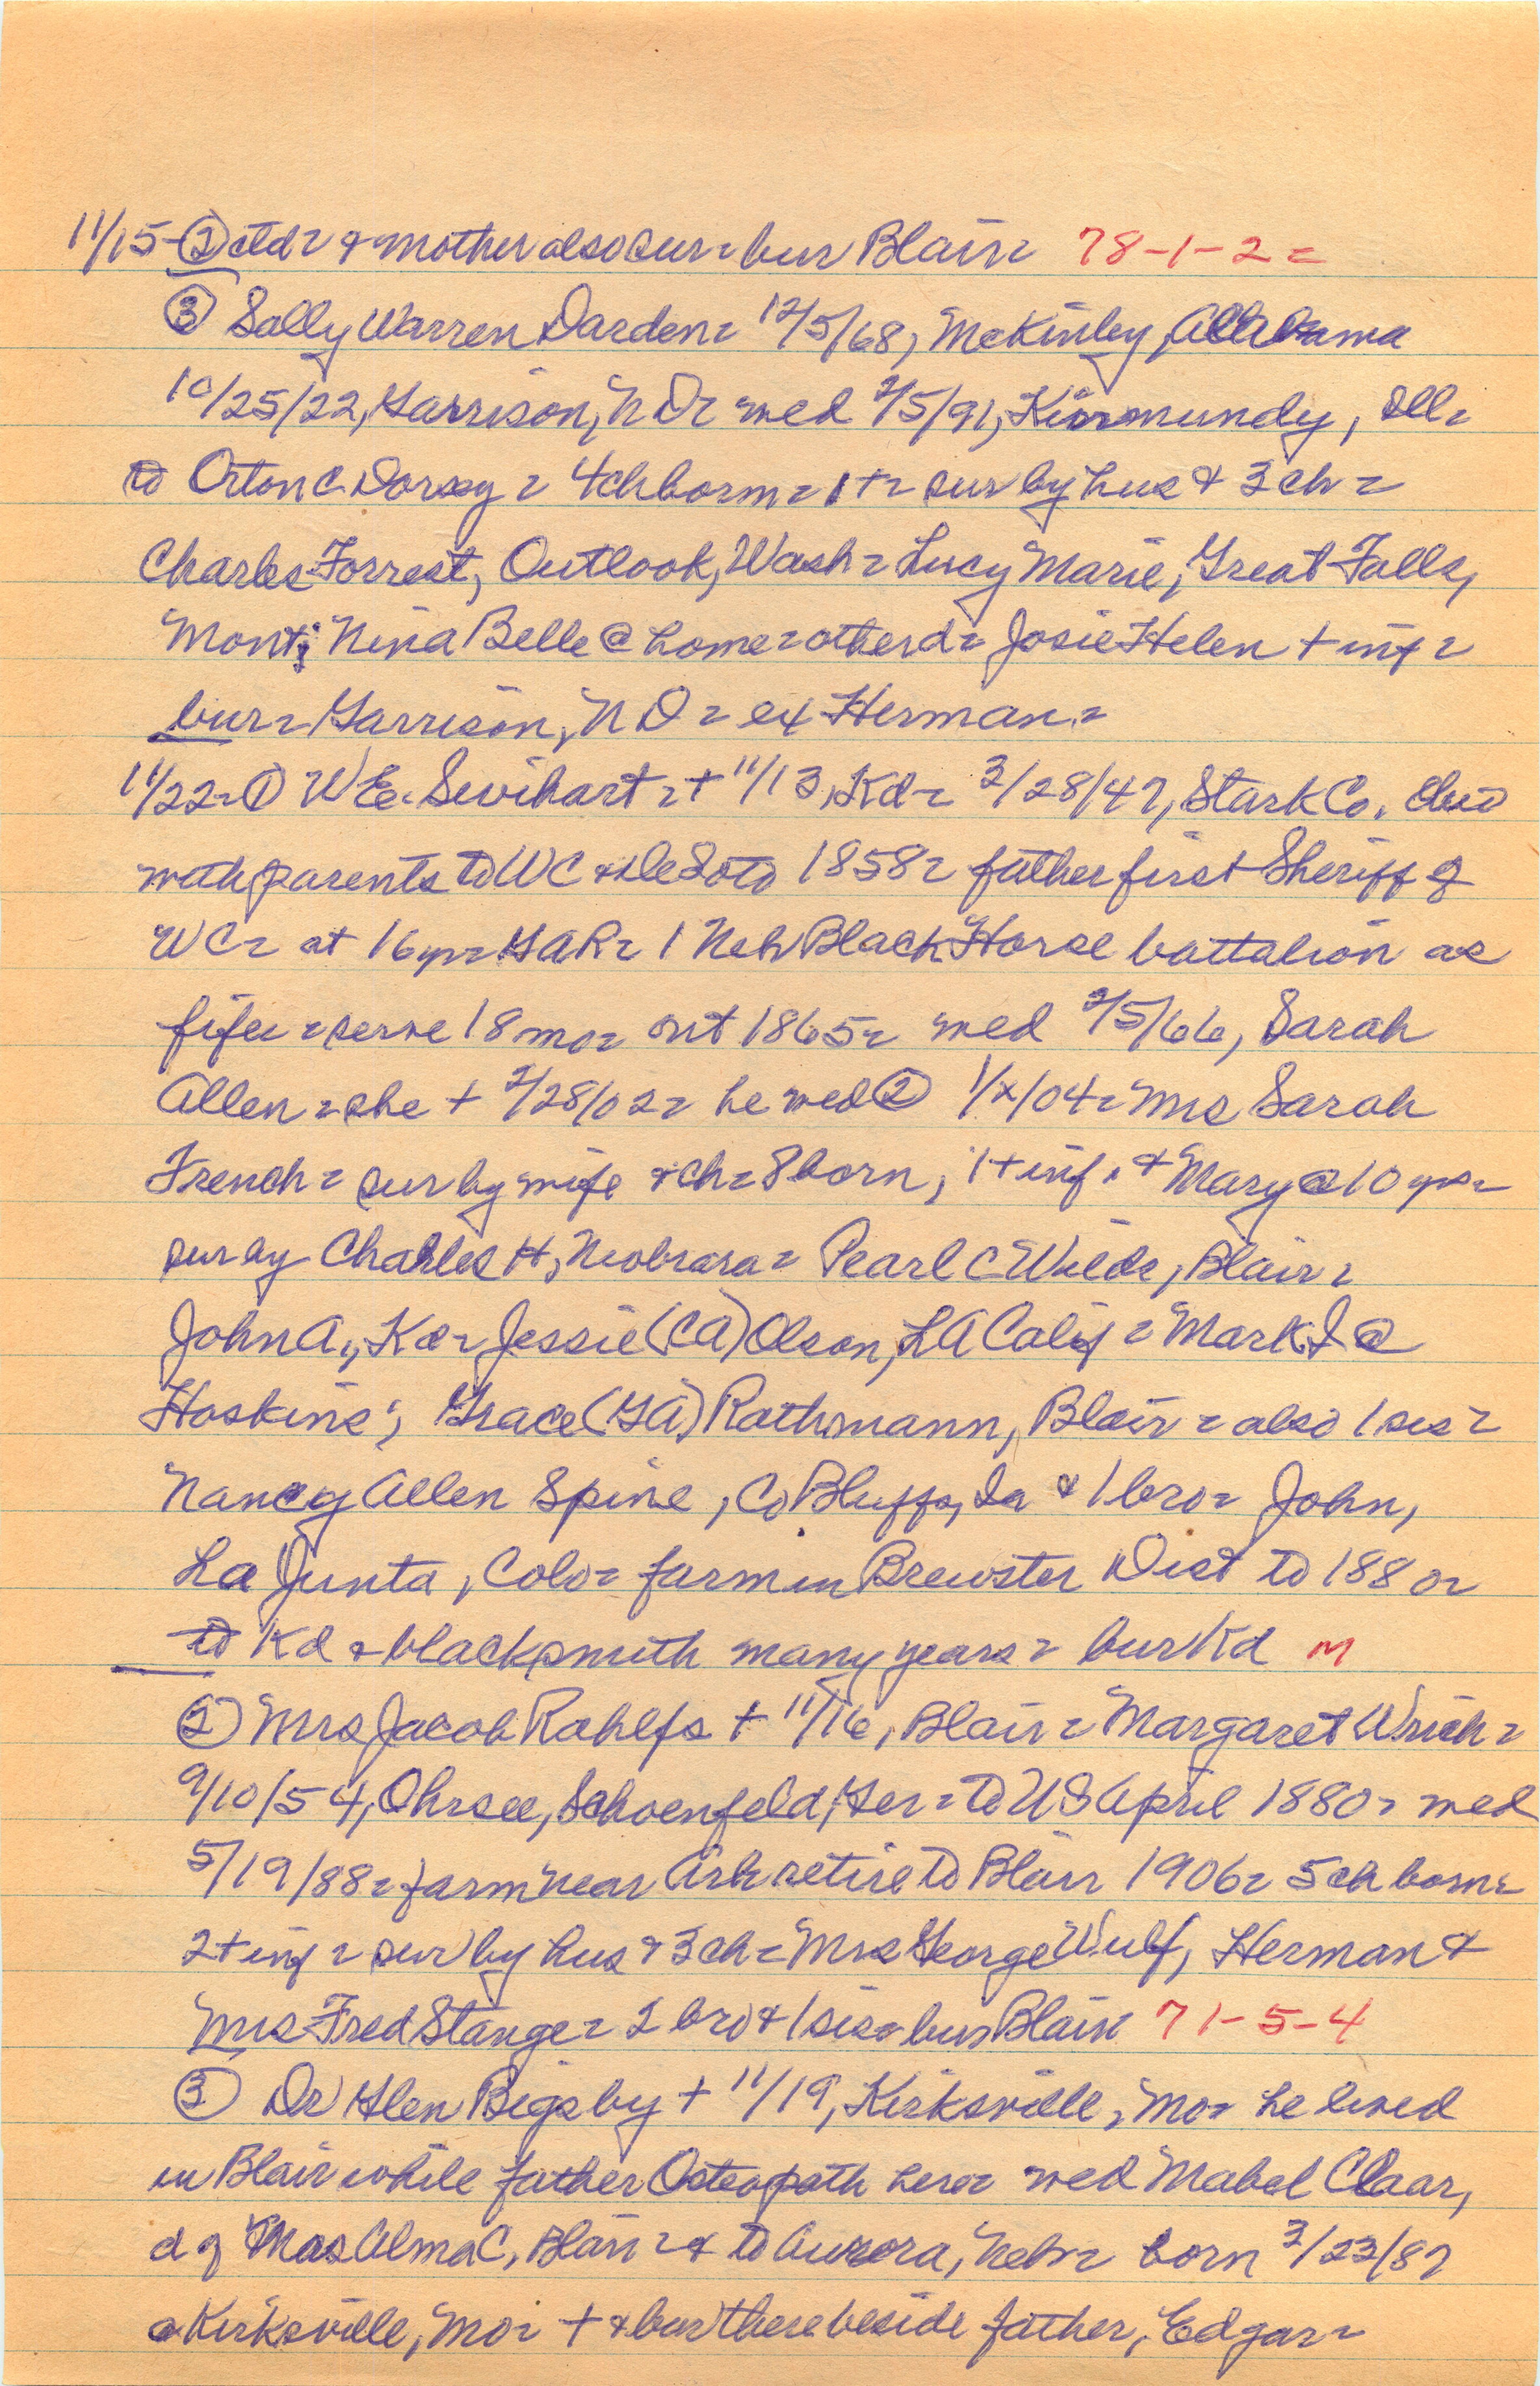 11/15-② ctd = & mother also sur = bur Blair = 78-1-2 =
③ Sally Warren Darden = 12/5/68, McKinley, Alabama
10/25/22, Garrison, N D = wed 2/5/91, Kinmundy, Ill =
to Orton C Dorsey = 4 ch born = 1 + = sur by hus & 3 ch =
Charles Forrest, Outlook, Wash = Lucy Marie, Great Falls,
Mont; Nina Belle @ home = other d = Josie Helen + inf =
bur = Garrison, N D = ex Herman =
11/22 = ① W E. Swihart = + 11/13, Kd = 3/28/47, Stark Co. Ohio
with parents to WC & DeSoto 1858 = father first Sheriff of
WC = at 16 yr = GAR = 1 Neb Black Horse battalion as
fifer = serve 18 mo = out 1865 = wed 2/5/66, Sarah
Allen = she + 2/28/02 = he wed ② 1/x/04 = Mrs Sarah
French = sur by wife & ch = 8 born, 1 + inf. & Mary @ 10 yrs =
sur by Charles H, Niobrara = Pearl C Wilde, Blair =
John A., Kd = Jessie (CA) Olson, LA Calif = Mark I @
Hoskins; Grace (GA) Rathmann, Blair = also 1 sis =
Nancy Allen Spine, Co Bluffs, Ia & 1 bro = John,
La Junta, Colo = farm in Brewster Dist to 1880 =
to Kd & blacksmith many years = bur Kd M
② Mrs Jacob Rahlfs + 11/16, Blair = Margaret Wrich =
9/10/54, Ohrsee, Schoenfeld, Ger = to US April 1880 = wed
5/19/88 = farm near Arl = retire to Blair 1906 = 5 ch born =
2 + inf = sur by hus & 3 ch = Mrs George Wulf, Herman &
Mrs Fred Stange = 2 bro & 1 sis = bur Blair 71-5-4
③ Dr Glen Bigsby + 11/19, Kirksville, Mo = he lived
in Blair while father Osteopath here = wed Mabel Claar,
d of Mrs Alma C, Blair = & to Aurora, Neb = born 3/23/87
@ Kirksville, Mo = + & bur there beside father, Edgar =